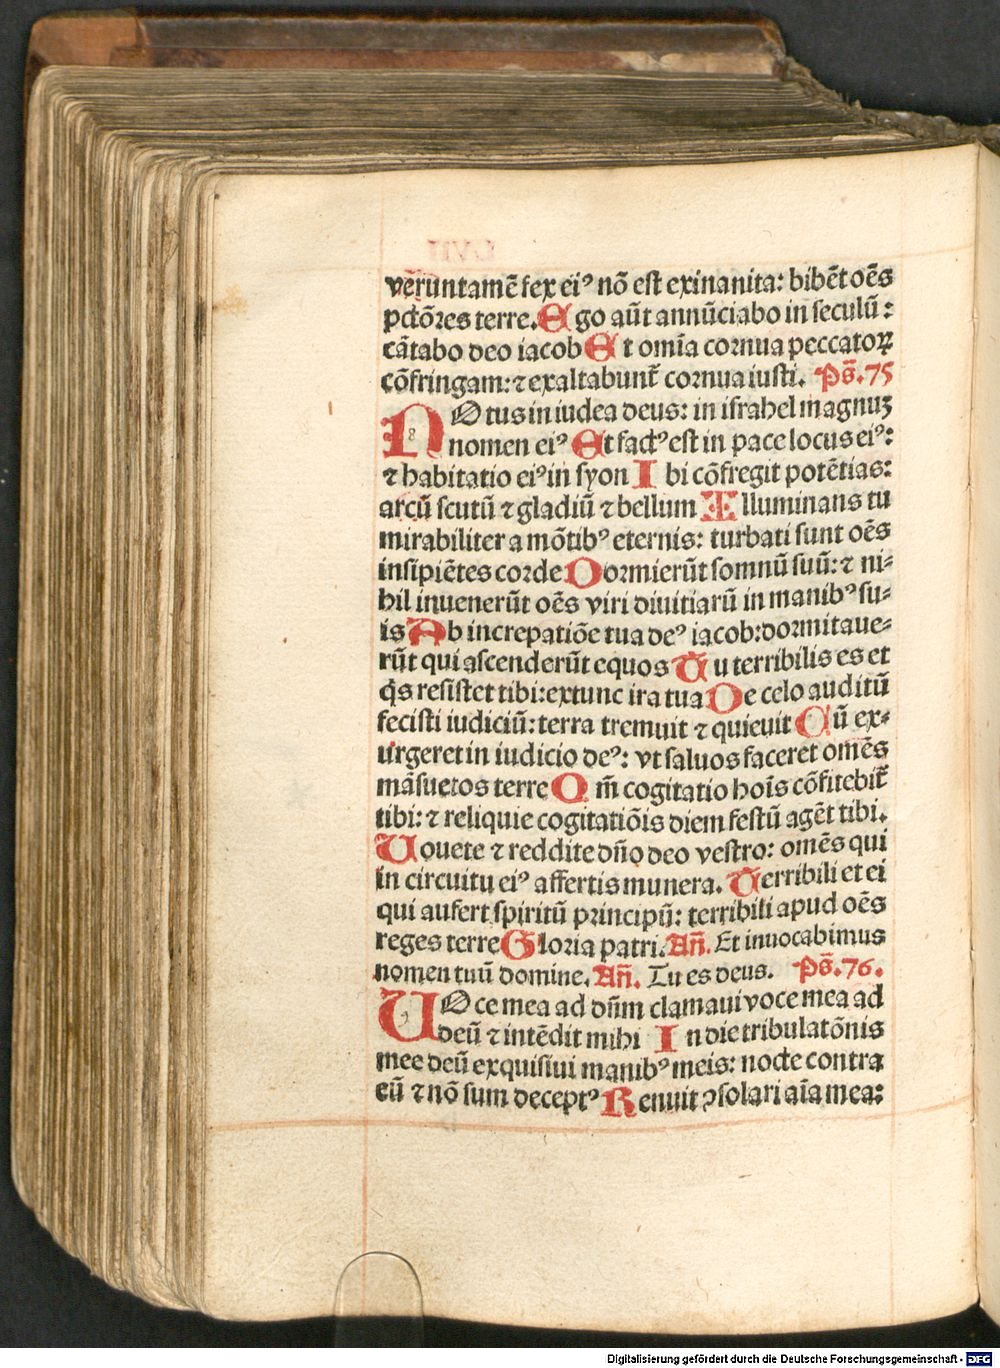 LVII
verūntamē fex eiꝰ nō est exinanita: bibēt oēs
pctōres terre. Ego aūt annūciabo in seculū:
cātabo deo iacob Et omīa cornua peccatoꝝ
cōfringam: ⁊ exaltabunt̄ cornua iusti. Ps̄. 75
NOtus in iudea deus: in israhel magnuꝫ
nomen eiꝰ Et factꝰ est in pace locus eiꝰ:
⁊ habitatio eiꝰ in syon Ibi cōfregit potētias:
arcū scutū ⁊ gladiū ⁊ bellum Illuminans tu
mirabiliter a mōtibꝰ eternis: turbati sunt oēs
insipiētes corde Dormierūt somnū suū: ⁊ ni-
hil inuenerūt oēs viri diuitiarū in manibꝰ su-
is Ab increpatiōe tua deꝰ iacob: dormitaue-
rūt qui ascenderūt equos Tu terribilis es et
q̇s resistet tibi: extunc ira tua De celo auditū
fecisti iudiciū: terra tremuit ⁊ quieuit Cū ex-
urgeret in iudicio deꝰ: vt saluos faceret omēs
māsuetos terre Qm̄ cogitatio hoīs cōfitebit̄
tibi: ⁊ reliquie cogitatiōis diem festū agēt tibi.
Uouete ⁊ reddite dn̄o deo vestro: omēs qui
in circuitu eiꝰ affertis munera. Terribili et ei
qui aufert spiritū principū: terribili apud oēs
reges terre Gloria patri. An̄. Et inuocabimus
nomen tuū domine. An̄. Tu es deus. Ps̄. 76.
UOce mea ad dn̄m clamaui voce mea ad
deū ⁊ intēdit mihi In die tribulatōnis
mee deū exquisiui manibꝰ meis: nocte contra
eū ⁊ nō sum deceptꝰ Renuit ꝯsolari aīa mea:
Digitalisierung gefördert durch die Deutsche Forschungsgemeinschaft - DFG